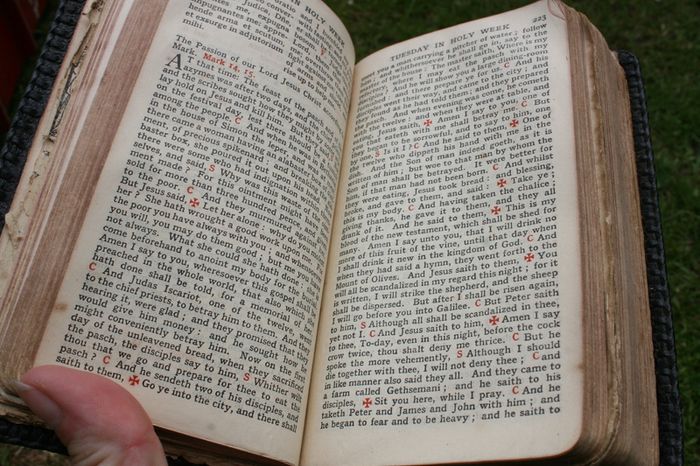 IN HOLY WEEK
Judica, Dom
pugnantes me, appre-
hende arma et scutum,
et exsurge in adjutorium
mihi.
rise up to help
The Passion of our Lord Jesus Christ
Mark. Mark 14, 15.
AT that time: The feast of the pasch
azymes was after two days; and the
and the scribes sought how they might
lay hold on Jesus and kill him. But they
on the festival day, lest there should be
among the people. C And when he was in
in the house of Simon the leper, and was
there came a woman having an alabaster box
of precious spikenard; and breaking the ala-
baster box, she poured it out upon his head.
there were some that had indignation within them-
selves, and said, S Why was this waste of the oint-
ment made? For this ointment might have been
sold for more than three hundred pence, and given
to the poor. C And they murmured against her.
But Jesus said, ✠ Let her alone: why do you molest
her? She hath wrought a good work upon me. For
the poor you have always with you; and whensoever
you will, you may do them good; but me you have
not always. What she could, she hath done; she is
come beforehand to anoint my body for the burial.
Amen I say to you, wheresoever this gospel shall be
preached in the whole world, that also which she
hath done shall be told, for a memorial of her.
C And Judas Iscariot, one of the twelve, went
to the chief priests, to betray him to them. And they
hearing it, were glad; and they promised that they
would give him money; and he sought how he
might conveniently betray him. Now on the first
day of the unleavened bread, when they sacrificed
the pasch, the disciples say to him, S Whither wilt
thou that we go and prepare for thee to eat the
pasch? C And he sendeth two of his disciples, and
saith to them, ✠ Go ye into the city, and there shall
TUESDAY IN HOLY WEEK 223
meet you a man carrying a pitcher of water; follow
him: and whithersoever he shall go in, say to the
master of the house: The master saith, Where is my
refectory, where I may eat the pasch with my
disciples? And he will show you a large dining-room
furnished; and there prepare ye for us. C And his
disciples went their way, and came into the city; and
they found as he had told them; and they prepared
the pasch. And when evening was come, he cometh
with the twelve: and when they were at table, and
eating, Jesus saith, ✠ Amen I say to you, one of
you that eateth with me shall betray me. C But
they began to be sorrowful, and to say to him, one
by one, S Is it I? C And he said to them, ✠ One of
the twelve who dippeth his hand with me in the
dish. And the Son of man indeed goeth, as it is
written of him; but wo to that man by whom the
Son of man shall be betrayed. It were better for
him, if that man had not been born. C And whilst
they were eating, Jesus took bread; and blessing,
broke, and gave to them, and said: ✠ Take ye;
this is my body. C And having taken the chalice,
giving thanks, he gave it to them, and they all
drank of it. And he said to them, ✠ This is my
blood of the new testament, which shall be shed for
many. Amen I say unto you, that I will drink no
more of this fruit of the vine, until that day when
I shall drink it new in the kingdom of God. C And
when they had said a hymn, they went forth to the
Mount of Olives. And Jesus saith to them, ✠ You
will all be scandalized in my regard this night; for it
is written, I will strike the shepherd, and the sheep
shall be dispersed. But after I shall be risen again,
I will go before you into Galilee. C But Peter saith
to him, S Although all shall be scandalized in thee,
yet not I. C And Jesus saith to him, ✠ Amen I say
to thee, To-day, even in this night, before the cock
crow twice, thou shalt deny me thrice. C But he
spoke the more vehemently, S Although I should
die together with thee, I will not deny thee; C and
in like manner also said they all. And they came to
a farm called Gethsemani; and he saith to his
disciples, ✠ Sit you here, while I pray. C And he
taketh Peter and James and John with him; and
he began to fear and to be heavy; and he saith to